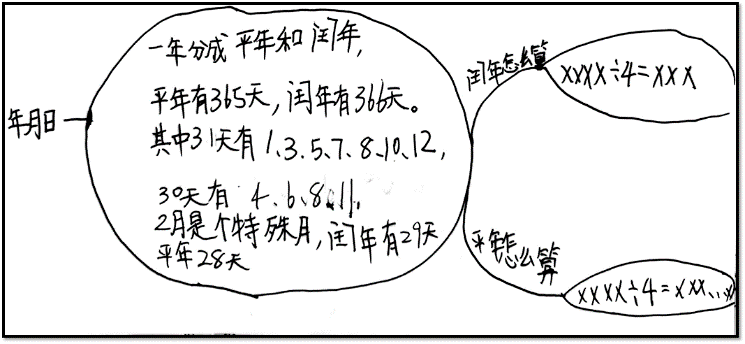 年月日
一年分成平年和闰年,
平年有365天,闰年有366天。
其中31天有1、3、5、7、8、10、12,
30天有 4、6、8、11。
2月是个特殊月,闰年有29天
平年28天
闰年怎么算
XXXX÷4=XXX
平年怎么算
XXXX÷4=XXX…X